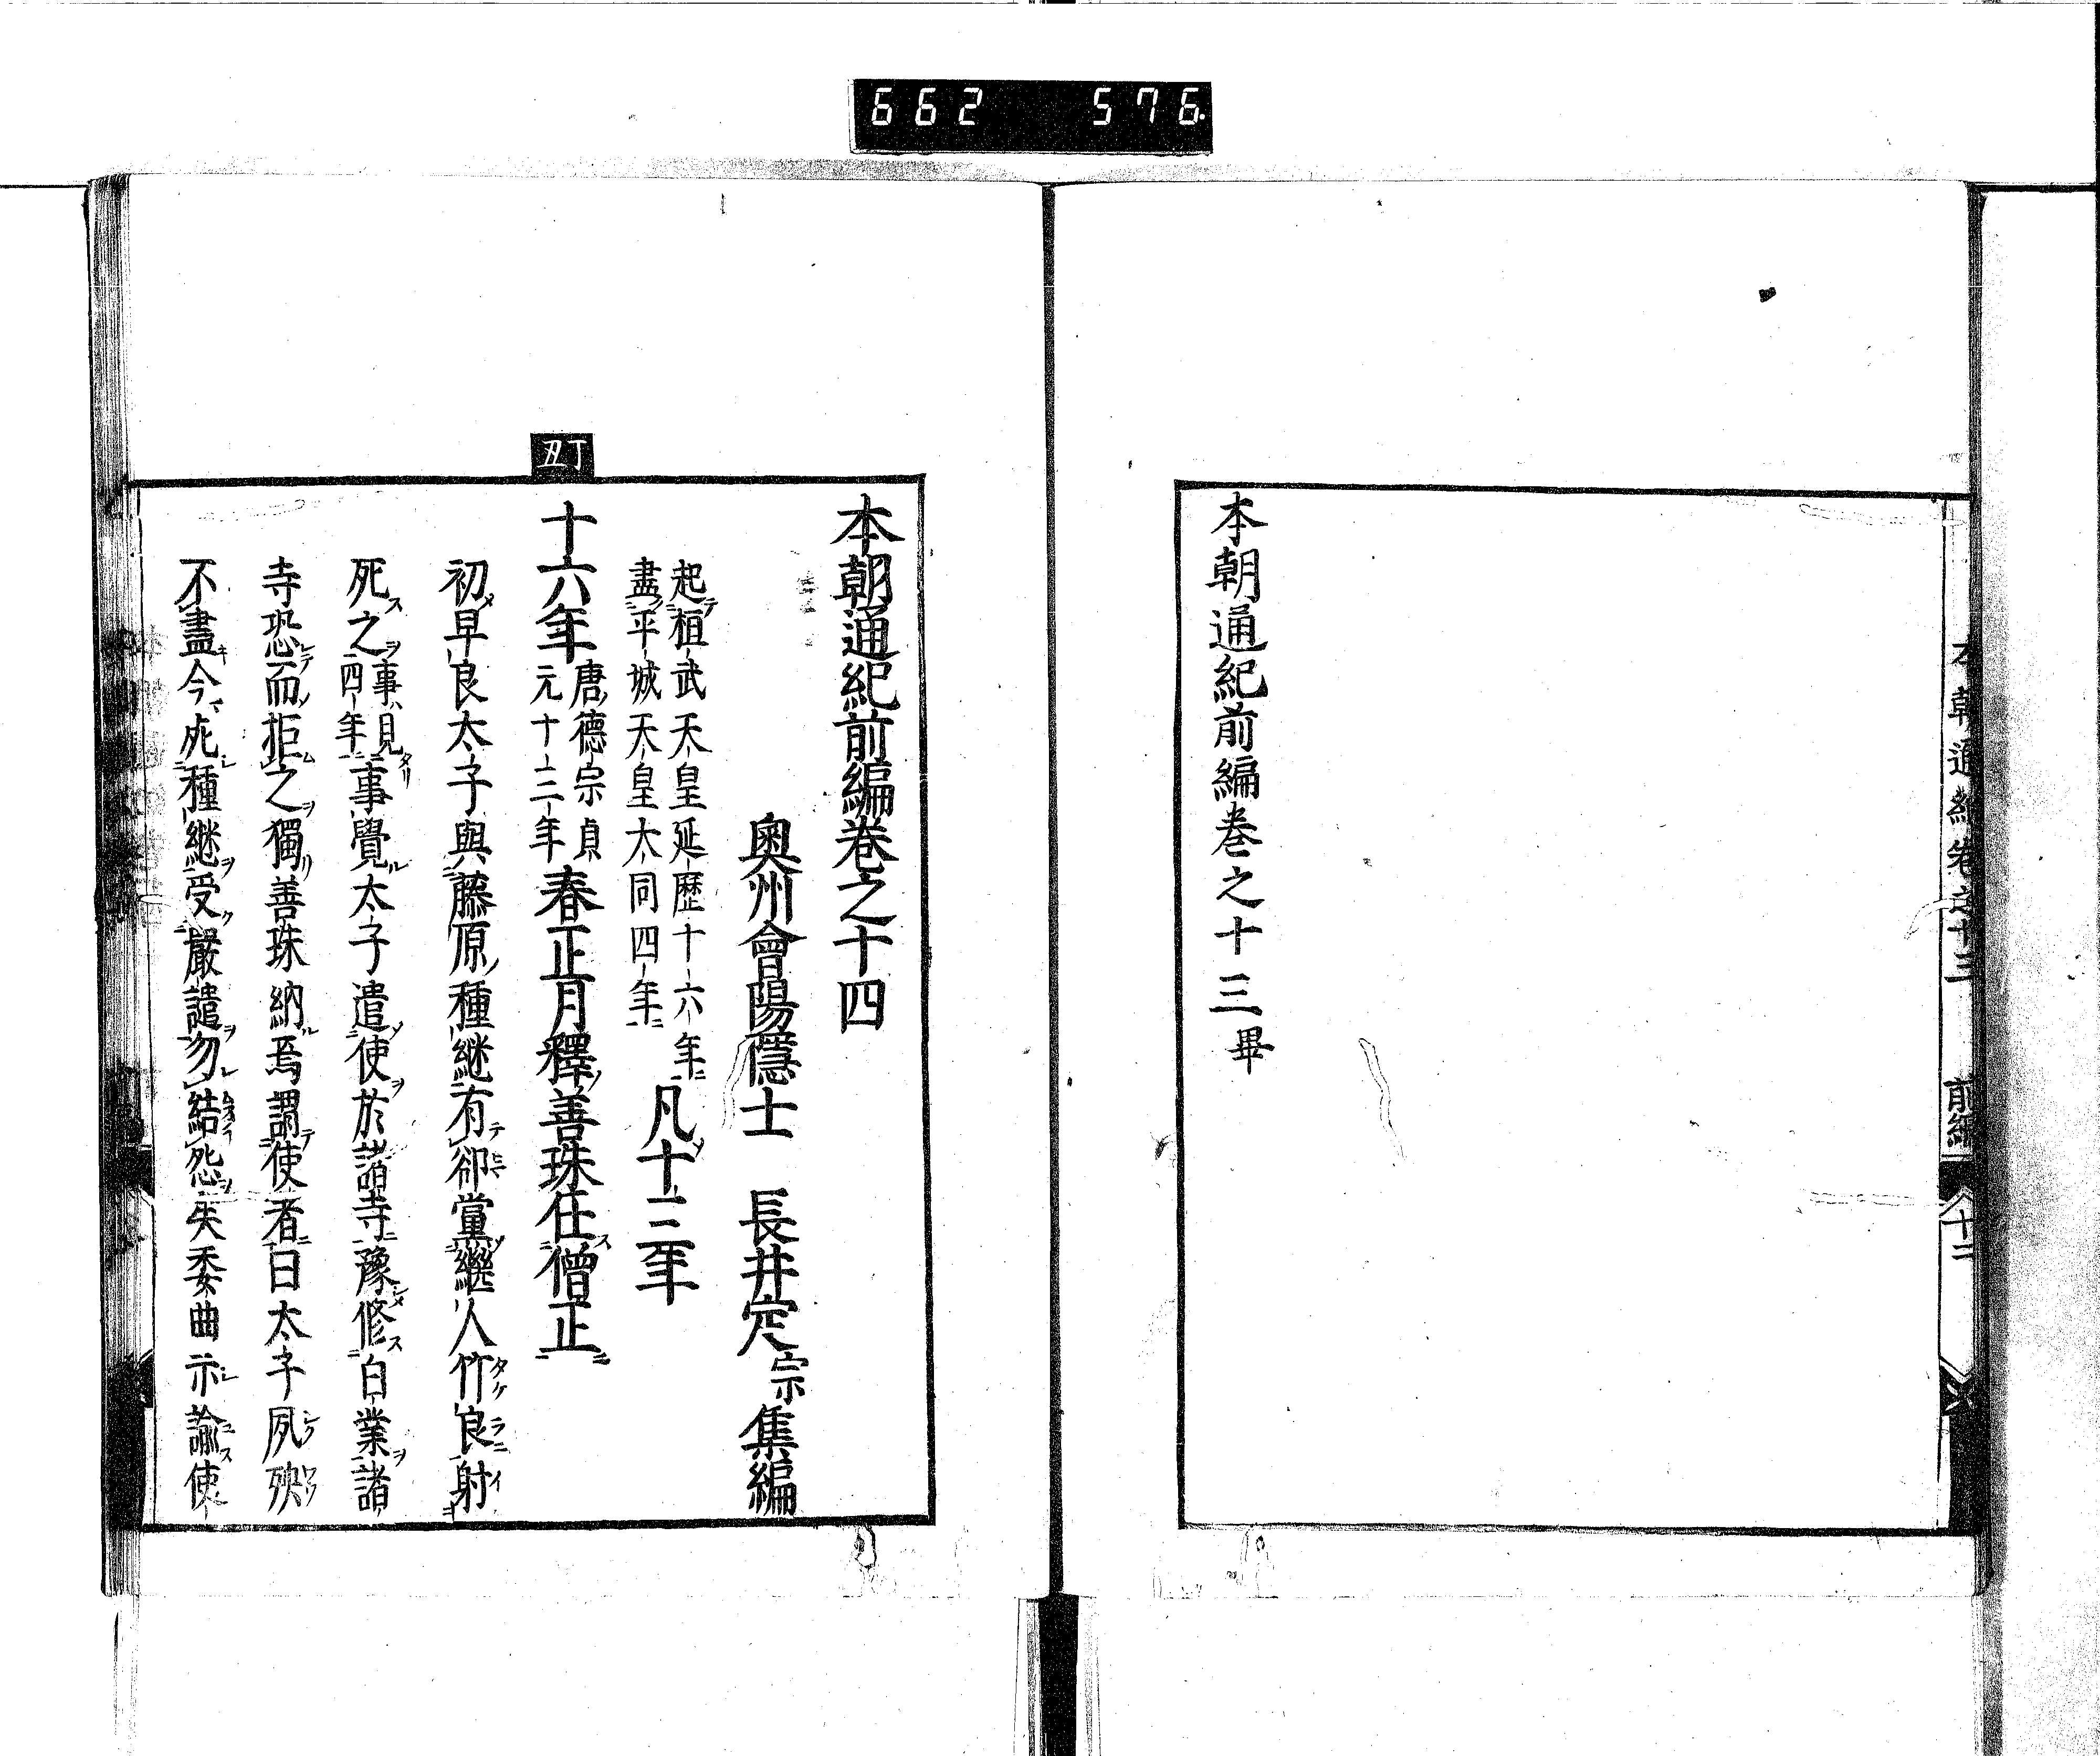 662 576
本朝通紀卷之十三 前編 十二
本朝通紀前編巻之十三畢
本朝通紀前編巻之十四
奥州會陽隱士 長井定宗集編
起桓武天皇延歷十六年
盡平城天皇大同四年
凡十三年
丁丑
十六年
唐德宗貞
元十三年
春正月釋善珠任僧正
初早良太子與藤原種継有郤黨継人竹良射
死之事見四年事覺太子遣使於諸寺豫修白業諸
寺恐而拒之獨善珠納焉謂使者曰太子夙殃
不盡今死種継受嚴譴勿結怨矣委曲示諭使